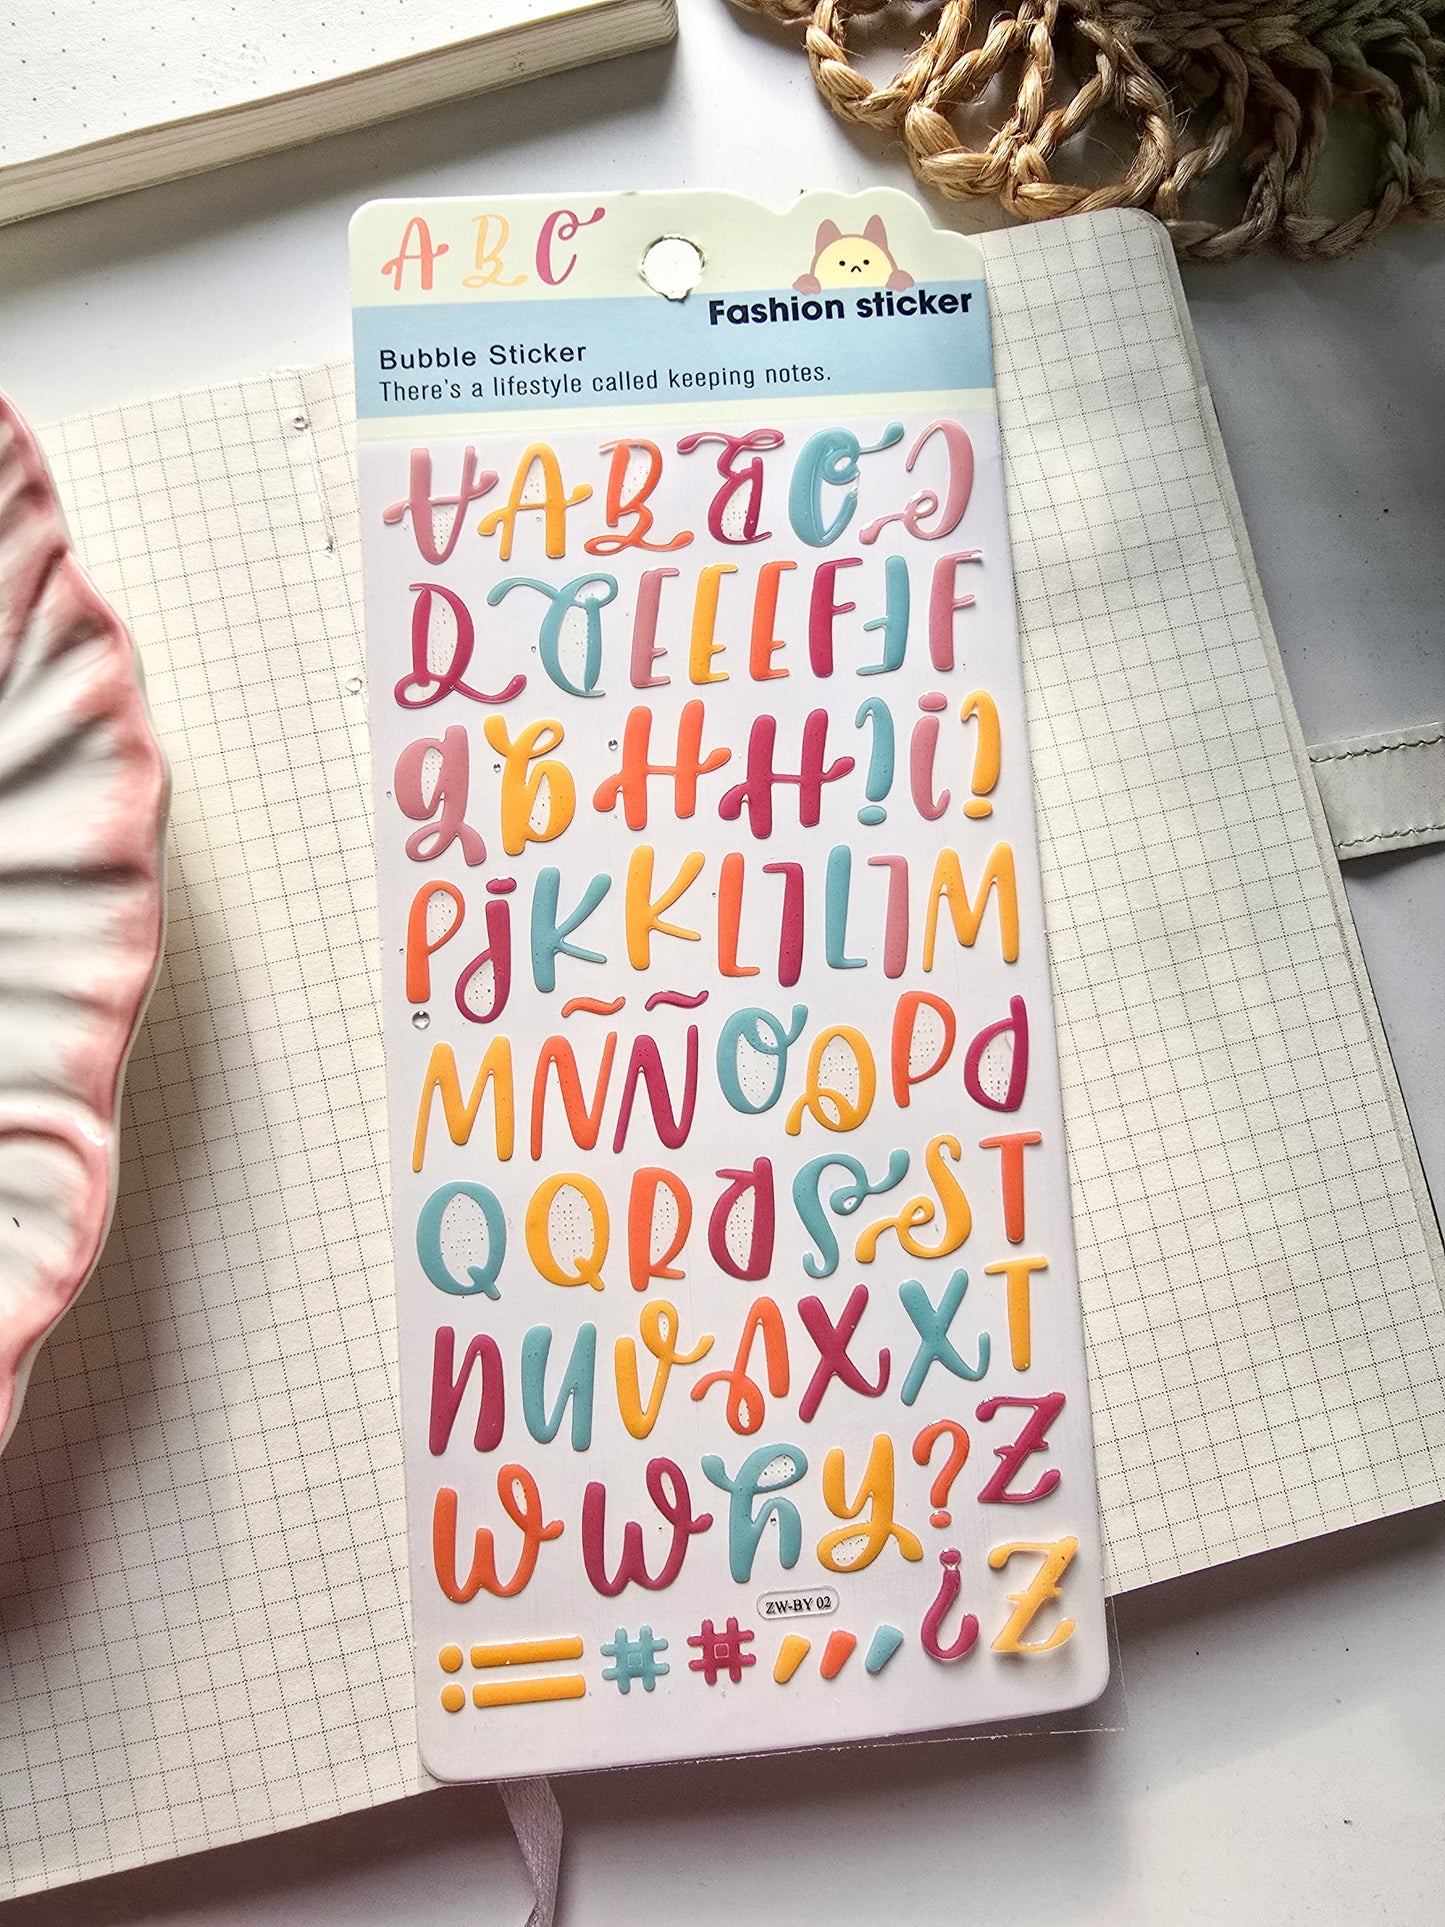 A B C
Fashion sticker
Bubble Sticker
There's a lifestyle called keeping notes.
A A B B C C
D D E E E F F F
g g H H i i i
P j K K L L L L M
M Ñ Ñ O O P P
Q Q R R S S T
U U V V X X T
W W y y ? Z
ZW-BY 02
: = # # , , , ? Z